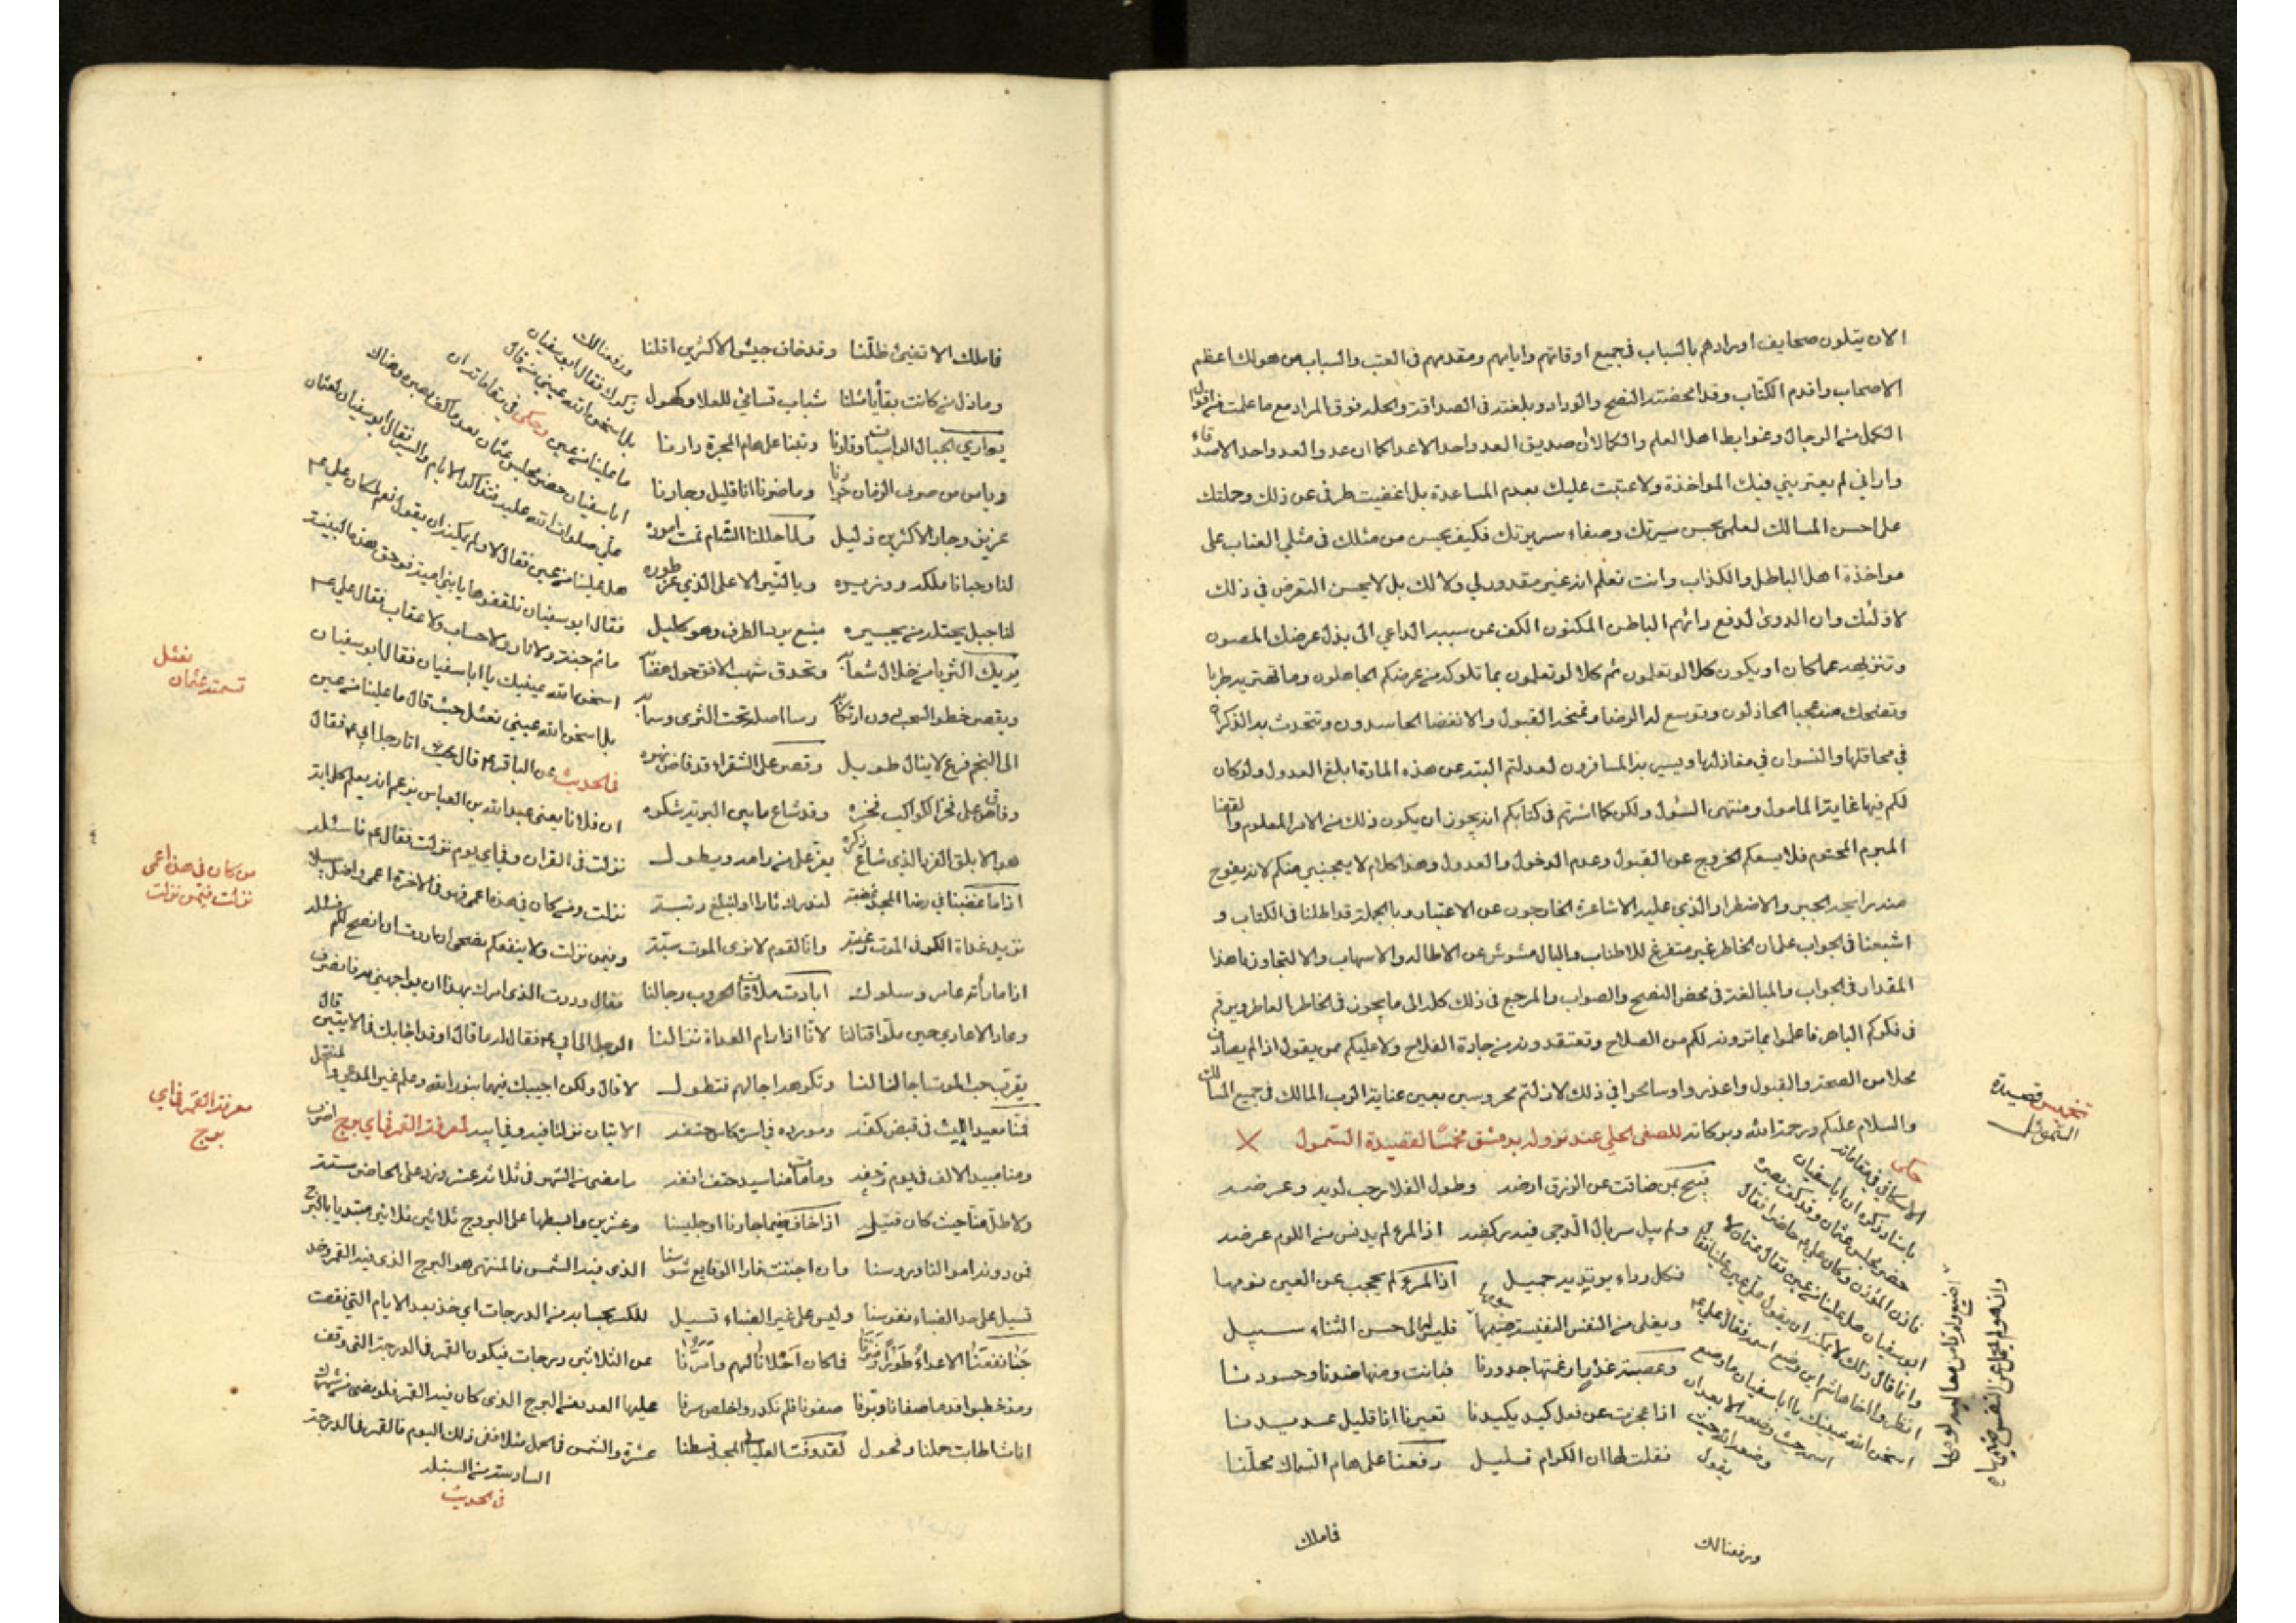 الان يتلون صحايف اورادهم بالسباب في جميع اوقاتهم واياهم ومقدمهم في العتب والسباب من هو لك اعظم
الاصحاب واقدم الكتاب وقد امحضته النصح والوداد وبلغته في الصداقة والخلد فوق المراد مع ما علمت من اقوال
الكمل من الرجال وضوابط اهل العلم والكمال ان صديق العدو احد الاعداء كما ان عدو العدو احد الاصدقاء
واراني لم يعتريني فيك المواخذة ولا عتبت عليك بعدم المساعدة بل اغضيت طرفي عن ذلك وحملتك
على احسن المسالك لعلمي بحسن سيرتك وصفاء سريرتك فكيف يحسن من مثلك في مثلي العتاب على
مواخذة اهل الباطل والكذاب وانت تعلم انه غير مقدور لي ولا لك بل لا يحسن التعرض في ذلك
لاذلئك وان الدوى لدفع دائهم الباطن المكنون الكف عن سببه الداعي الى بذل عرضك المصون
وتنزيهه عما كان او يكون كلا لو تعلمون ثم كلا لو تعلمون بما تلوكه من عرضكم الجاهلون وما تهتز به طربا
وتضحك منه عجبا الحاذلون وتوسع له الرضا وتمنحه القبول والانفضا الحاسدون وتتحدث به الذكراه
في محافلها والنسوان في مغازلها ويسير به المسافرون لعدلتم البتة عن هذه المادة ابلغ العدول ولو كان
لكم فيها غاية المامول ومنتهى السول ولكن كما اشرتم في كتابكم انه يجوز ان يكون ذلك من الامر المعلوم والقضا
المبرم المحتوم فلا يسعكم الخروج عن القبول وعدم الدخول والعدول وهذا الكلام لا يعجبني منكم لانه يفوح
منه رائحة الجبر والاضطرار الذي عليه الاشاعرة الخارجون عن الاعتبار وبالجملة قد اطلنا في الكتاب و
اشبعنا في الجواب علمان الخاطر غير متفرغ للاطناب والبال مشوش عن الاطالة والاسهاب والا لتجاوزنا هذا
المقدار في الجواب والمبالغة في محض النصح والصواب والمرجع في ذلك كله الى ما يجوز في الخاطر العاطر ويرقم
في فكركم الباهر فاعلموا بما ترونه لكم من الصلاح وتعتقدونه من جادة الفلاح ولا عليكم ممن يقول اذا لم يصادف
محلا من الصحة والقبول واعذروا وسامحوا في ذلك لا زلتم محروسين بعين عناية الرب المالك في جميع المسالك
والسلام عليكم ورحمة الله وبركاته للصفي الحلي عند نزوله بدمشق مخمسا لقصيدة السمول
تخميس قصيدة
السموئل
قبيح بمن ضاقت عن الرزق ارضه وطول الفلا رحب لديه وعرضه
ولم يبل سربال الدجى فيه ركضه اذا المرء لم يدنس من اللوم عرضه
فكل رداء يرتديه جميل اذا المرء لم يحجب عن العين نومها
ويغلى من النفس النفيسة سومها فليس الى حسن الثناء سبيل
وعصبة غدر ارغمتها جدودنا فباتت ومنها ضدنا وحسودنا
اذا عجزت عن فعل كيد يكيدنا تعيرنا انا قليل عديدنا
فقلت لها ان الكرام قليل رفعنا على هام السماك محلنا
حكى
الاسكافي في مقاماته
باسناد ذكره ان ابا سفيان
حضر مجلس عثمان وقد كف بصره
فاذن المؤذن وكان علي عم حاضرا فقال
ابو سفيان هل علينا من عين فقال عثمان لا
وانما قال ذلك لا يمكنه ان يقول علي عين علينا فقال
انظروا اخا هاشم اين وضع اسمه فقال علي عم
اسخن الله عينيك يا ابا سفيان ما وضع
اسمه حيث وضعه الا بعد ان
وضعه الله حيث
يقول
وان هو لم يحمل عن النفس ضيمها
ورفعنا لك
فاملك
فاملك الا تفئ ظلنا وقد خاف جيش الاكثرين اقلنا
وما ذل من كانت بقاياه مثلنا شباب تسامى للعلا وكهول
يوازي الجبال الراسيات وقارنا وتبنا على هام المجرة دارنا
ويامن من صرف الزمان جوارنا وما ضرنا انا قليل وجارنا
عزيز وجار الاكثرين ذليل ولما حللنا الشام تمت اموره
لنا وحبانا ملكه ووزيره وبالنير الاعلى الذي عز طوره
لنا جبل يحتله من يجيره منيع يرد الطرف وهو كليل
يريك الثريا من خلال شعابه وتحدق شهب الافق حول هضابه
ويقصر خطو السحب دون ارتكابه رسا اصله تحت الثرى وسما به
الى النجم فرع لا ينال طويل وقصر على الشقراء قد فاض نهره
وفاق على فخر الكواكب فخره وقد شاع ما بين البرية شكره
هو الابلق الفرد الذي شاع ذكره يعز على من رامه ويطول
اذا ما غضبنا في رضا المجد غضبة لندرك ثارا او لنبلغ رتبة
نزيد غداة الكر في الموت رغبة وانا لقوم لا نرى الموت سبة
اذا ما رأته عامر وسلول ابادت ملاقاة الحروب رجالنا
وعاد الاعادي حين ملوا قتالنا لانا اذا رام العداة نزالنا
يقرب حب الموت آجالنا لنا وتكرهه اجالهم فتطول
فمنا معيد الليث في قبض كفه ومورده في اسره كاس حتفه
ومنا مبيد الالف في يوم زحفه وما مات منا سيد حتف انفه
ولا طل منا حيث كان قتيل اذا خاف ضيما جارنا او جليسنا
فمن دونه اموالنا ورؤسنا وان اججت نار الوقايع شوسنا
تسيل على حد الظباء نفوسنا وليس على غير الظباء تسيل
جنا نفعنا الاعداء طورا وضرنا فما كان احلانا لهم وامرنا
ومذ خطبوا قدما صفانا وبرنا صفونا فلم نكدر واخلص سرنا
اناث اطابت حملنا وفحول لقد وفت العلياء في المجد قسطنا
ورفعنا لك
ذكرك فقال ابو سفيان
بل اسخن الله عيني من قال
ما علينا من عين وحكى في مقاماته ان
ابا سفيان حضر مجلس عثمان بعد ما كف بصره وهناك
علي صلوات الله عليه فتذاكروا الايام والسير فقال ابو سفيان لعثمان
هل علينا من عين فقال لا ولم يمكنه ان يقول نعم لمكان علي عم
فقال ابو سفيان تلقفوها يا بني امية فوحق هذه البنية
ما ثم جنة ولا نار ولا حساب ولا عقاب فقال علي عم
اسخن الله عينيك يا ابا سفيان فقال ابو سفيان
بل اسخن الله عيني نعثل حيث قال ما علينا من عين
في الحديث عن الباقر عم قال اتا رجل ابي عم فقال
ان فلانا يعني عبد الله بن العباس يزعم انه يعلم كل اية
نزلت في القران وفي اي يوم نزلت فقال عم فاسئله
نزلت ومن كان في هذه اعمى فهو في الاخرة اعمى واضل سبيلا
وفيمن نزلت ولا ينفعكم نصحي ان اردت ان انصح لكم فسئله
فقال وددت الذي امرك بهذا ان يواجهني به فانصرف
الرجل الى ابي عم فقال له ما قال او قد اجابك في الايتين قال
لا قال ولكن اجيبك فيها بنور الله وعلم غير المدعي والمنتحل
الايتان نزلتا فيه وفي ابيه لمعرفة القمر في اي برج اضرب
ما مضى من الشهر في ثلاثة عشر وزد على الحاضر ستة
وعشرين واقسطها على البروج ثلاثين ثلاثين مبتديا بالبرج
الذي فيه الشمس فالمنتهى هو البرج الذي فيه القمر وخذ
للكسر بحسابه من الدرجات اي خذ بعد الايام التي نقصت
عن الثلاثين درجات فيكون القمر في الدرجة التي وقف
عليها العدد من البرج الذي كان فيه القمر فلو مضى من شهرك
عشرة والشمس في الحمل مثلا ففي ذلك اليوم فالقمر في الدرجة
السادسة من السنبلة
في الحديث
نعثل
تسمية عثمان
من كان في هذه اعمى
نزلت فيمن نزلت
معرفة القمر في اي
برج